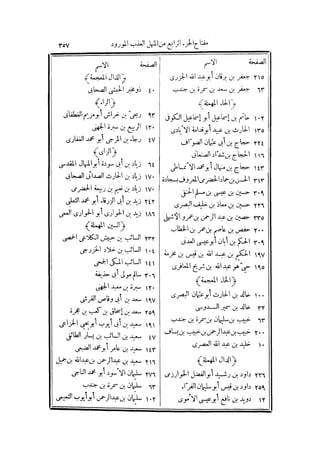 مفتاح الجزء الرابع من المنهل العذب المورود ٣٥٧
الصفحة الاسم
٢١٥ جعفر بن برقان أبو عبد الله الجزرى
٦٣ جعفر بن سعد بن سمرة بن جندب
﴿الحاء المهملة﴾
١٠٢ حاتم بن إسماعيل أبو إسماعيل الكوفى
١٣٥ الحارث بن عبيد أبو قدامة الأيادى
٢٢٤ حجاج بن أبى عثمان الصواف
١١٦ الحجاج بن شداد الصنعانى
١٤٣ حجاج بن منهال أبو محمد الأنماطى
٣١٣ الحسن بن حماد الحضرمى المعروف بسجادة
٢٣١ حسين بن عيسى بن مسلم الحنفى
٢٣٦ حسين بن معاذ بن خليف البصرى
٣٣٥ حصين بن عبد الرحمن بن عمرو الأشهلى
٢٠٠ حفص بن عاصم بن عمر بن الخطاب
٣٠٩ الحكم بن أبان أبو عيسى العدنى
١٩٧ الحكيم بن عبد الله بن قيس بن مخرمة
١٩٥ حيى هو عبد الله بن شريح المعافرى
﴿الخاء المعجمة﴾
١٠٠ خالد بن الحارث أبو عثمان البصرى
٢٣٢ خالد بن سمير السدوسى
٦٣ خبيب بن سليمان بن سمرة بن جندب
٢٠٠ خبيب بن عبد الرحمن بن خبيب بن يساف
١٠ خليد بن عبد الله العصرى
﴿الدال المهملة﴾
٢٣٦ داود بن رشيد أبو الفضل الخوارزمى
٢٥٩ داود بن قيس أبو سليمان الفراء
١٢ دويد بن نافع أبو عيسى الأموى
الصفحة الاسم
﴿الذال المعجمة﴾
٤٠ ذو مخبر الحبشى الصحابى
﴿الراء﴾
٩٣ ربعى بن خراش أبو مريم الغطفانى
١٢٠ الربيع بن سبرة الجهنى
٤٧ رجاء بن المرجى أبو محمد الغفارى
﴿الزاى﴾
٦٤ زياد بن أبى سودة أبو المنهال المقدسى
١٧٠ زياد بن الحارث الصدائى الصحابى
١٧٠ زياد بن نعيم بن ربيعة الحضرمى
٢٤٢ زيد بن أبى الزرقاء أبو محمد الثعلبى
١٨٦ زيد بن الحوارى أبو الحوارى العمى
﴿السين المهملة﴾
٢٣٣ السائب بن حبيش الكلاعى الحمصى
١٠٢ السائب بن خلاد الخزرجى
١٤٣ السائب المكى الجمحى
٣٠٦ سالم مولى أبى حذيفة
١٢٠ سبرة بن معبد الجهنى
١٩٧ سعد بن أبى وقاص القرشى
٢٥٩ سعد بن إسحاق بن كعب بن عجرة
١٩١ سعيد بن أبى أيوب أبو يحيى الخزاعى
٤٧ سعيد بن السائب بن يسار الطائفى
١٤٣ سعيد بن عامر أبو محمد الضبعى
٢١٦ سعيد بن عبد الرحمن بن عبد الله بن جميل
٢٧٦ سليمان الأسود أبو محمد الناجى
٦٣ سليمان بن سمرة بن جندب
١٠٢ سليمان بن عبد الرحمن أبو أيوب التميمى